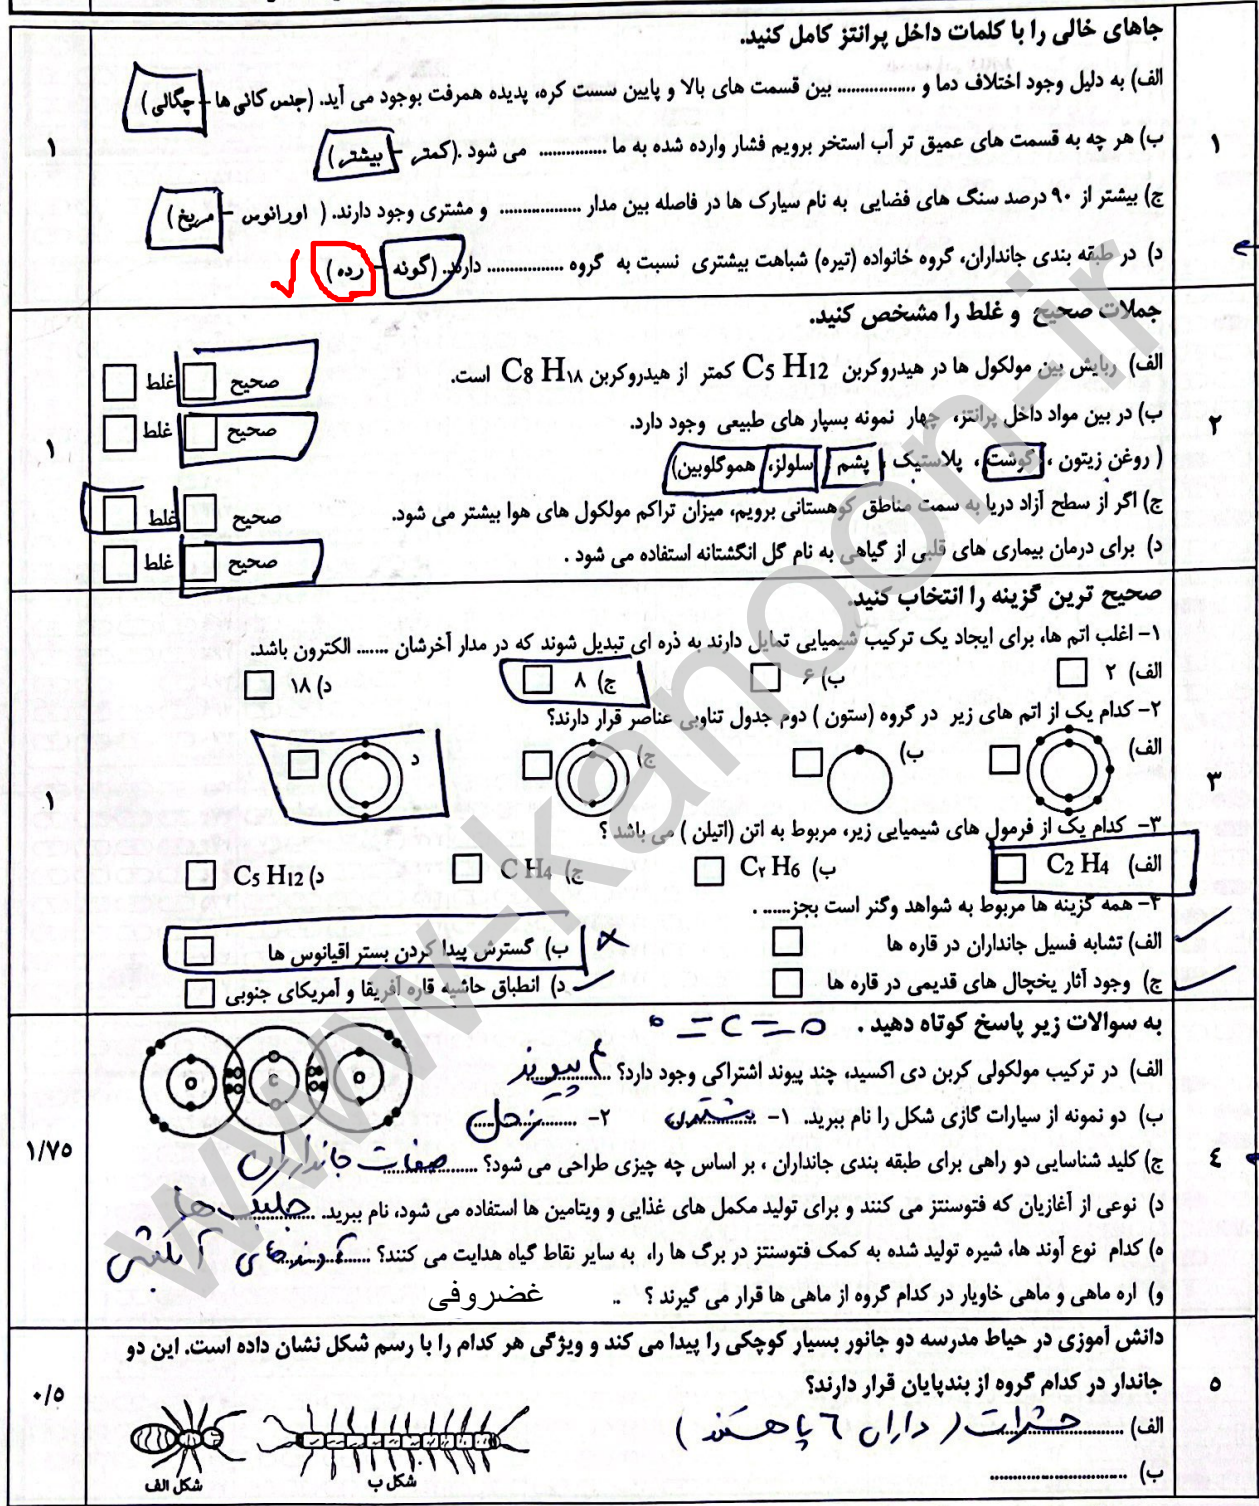 جاهای خالی را با کلمات داخل پرانتز کامل کنید.
الف) به دلیل وجود اختلاف دما و ................ بین قسمت های بالا و پایین سست کره، پدیده همرفت بوجود می آید. (جنس کانی ها - چگالی)
۱
ب) هر چه به قسمت های عمیق تر آب استخر برویم فشار وارده شده به ما .............. می شود .(کمتر - بیشتر)
۱
ج) بیشتر از ۹۰ درصد سنگ های فضایی به نام سیارک ها در فاصله بین مدار ................ و مشتری وجود دارند. ( اورانوس - مریخ )
د) در طبقه بندی جانداران، گروه خانواده (تیره) شباهت بیشتری نسبت به گروه ................ دارند. (گونه - رده)
جملات صحیح و غلط را مشخص کنید.
الف) ربایش بین مولکول ها در هیدروکربن C5 H12 کمتر از هیدروکربن C8 H۱۸ است. صحیح غلط
۲
ب) در بین مواد داخل پرانتز، چهار نمونه بسپار های طبیعی وجود دارد. صحیح غلط
۱
( روغن زیتون ، گوشت ، پلاستیک ، پشم ، سلولز، هموگلوبین)
ج) اگر از سطح آزاد دریا به سمت مناطق کوهستانی برویم، میزان تراکم مولکول های هوا بیشتر می شود. صحیح غلط
د) برای درمان بیماری های قلبی از گیاهی به نام گل انگشتانه استفاده می شود . صحیح غلط
صحیح ترین گزینه را انتخاب کنید.
۱- اغلب اتم ها، برای ایجاد یک ترکیب شیمیایی تمایل دارند به ذره ای تبدیل شوند که در مدار آخرشان ....... الکترون باشد.
الف) ۲ ب) ۶ ج) ۸ د) ۱۸
۲- کدام یک از اتم های زیر در گروه (ستون ) دوم جدول تناوبی عناصر قرار دارند؟
الف) ب) ج) د
۳
۱
۳- کدام یک از فرمول های شیمیایی زیر، مربوط به اتن (اتیلن ) می باشد ؟
الف) C2 H4 ب) C۲ H6 ج) C H4 د) C5 H12
۴- همه گزینه ها مربوط به شواهد وگنر است بجز...... .
الف) تشابه فسیل جانداران در قاره ها ب) گسترش پیدا کردن بستر اقیانوس ها
ج) وجود آثار یخچال های قدیمی در قاره ها د) انطباق حاشیه قاره آفریقا و آمریکای جنوبی
به سوالات زیر پاسخ کوتاه دهید . o=c=o
الف) در ترکیب مولکولی کربن دی اکسید، چند پیوند اشتراکی وجود دارد؟ ۴ پیوند
O C O
ب) دو نمونه از سیارات گازی شکل را نام ببرید. ۱- مشتری ۲- زحل
۴
۱/۷۵
ج) کلید شناسایی دو راهی برای طبقه بندی جانداران ، بر اساس چه چیزی طراحی می شود؟ صفات جانداران
د) نوعی از آغازیان که فتوسنتز می کنند و برای تولید مکمل های غذایی و ویتامین ها استفاده می شود، نام ببرید. جلبک ها
ه) کدام نوع آوند ها، شیره تولید شده به کمک فتوسنتز در برگ ها را، به سایر نقاط گیاه هدایت می کنند؟ آوندهای آبکش
و) اره ماهی و ماهی خاویار در کدام گروه از ماهی ها قرار می گیرند ؟ .. غضروفی
دانش آموزی در حیاط مدرسه دو جانور بسیار کوچکی را پیدا می کند و ویژگی هر کدام را با رسم شکل نشان داده است. این دو
جاندار در کدام گروه از بندپایان قرار دارند؟
۵
۰/۵
الف) حشرات ( دارای ۶ پا هستند )
ب) ............................
شکل ب
شکل الف
www-kanoon-ir